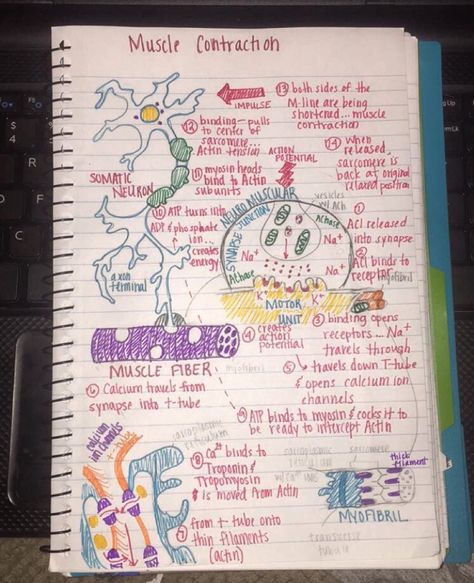 Muscle Contraction
IMPULSE
⑬ both sides of the
M-line are being
shortened... muscle
contraction
⑫ binding-pulls
to center of
sarcomere...
Actin tension
ACTION
POTENTIAL
⑭ When
released,
sarcomere is
back at original
relaxed position
SOMATIC
NEURON
⑪ myosin heads
bind to Actin
subunits
NEUROMUSCULAR
JUNCTION
SYNAPSE
vesicles
w/ ACh
⑩ ATP turns into
ADP & phosphate
ion...
creates
energy
①
ACl released
into synapse
AChase
Na+
Na+
②
ACl binds to
receptor
myofibril
axon
terminal
AChase
K+
K+
MOTOR
UNIT
④ creates
action
potential
③ binding opens
receptors... Na+
travels through
MUSCLE FIBER
myofibril
⑤ travels down T-tube
& opens calcium ion
channels
⑥ Calcium travels from
synapse into t-tube
⑨ ATP binds to myosin & cocks it to
be ready to intercept Actin
calcium
ion channels
t-tube
sarcoplasmic
reticulum
⑧ Ca2+ binds to
Troponin &
Tropomyosin
& is moved from Actin
sarcoplasmic
sarcomere
thick
filament
MYOFIBRIL
⑦
from t-tube onto
thin filaments
(actin)
transverse
tubule